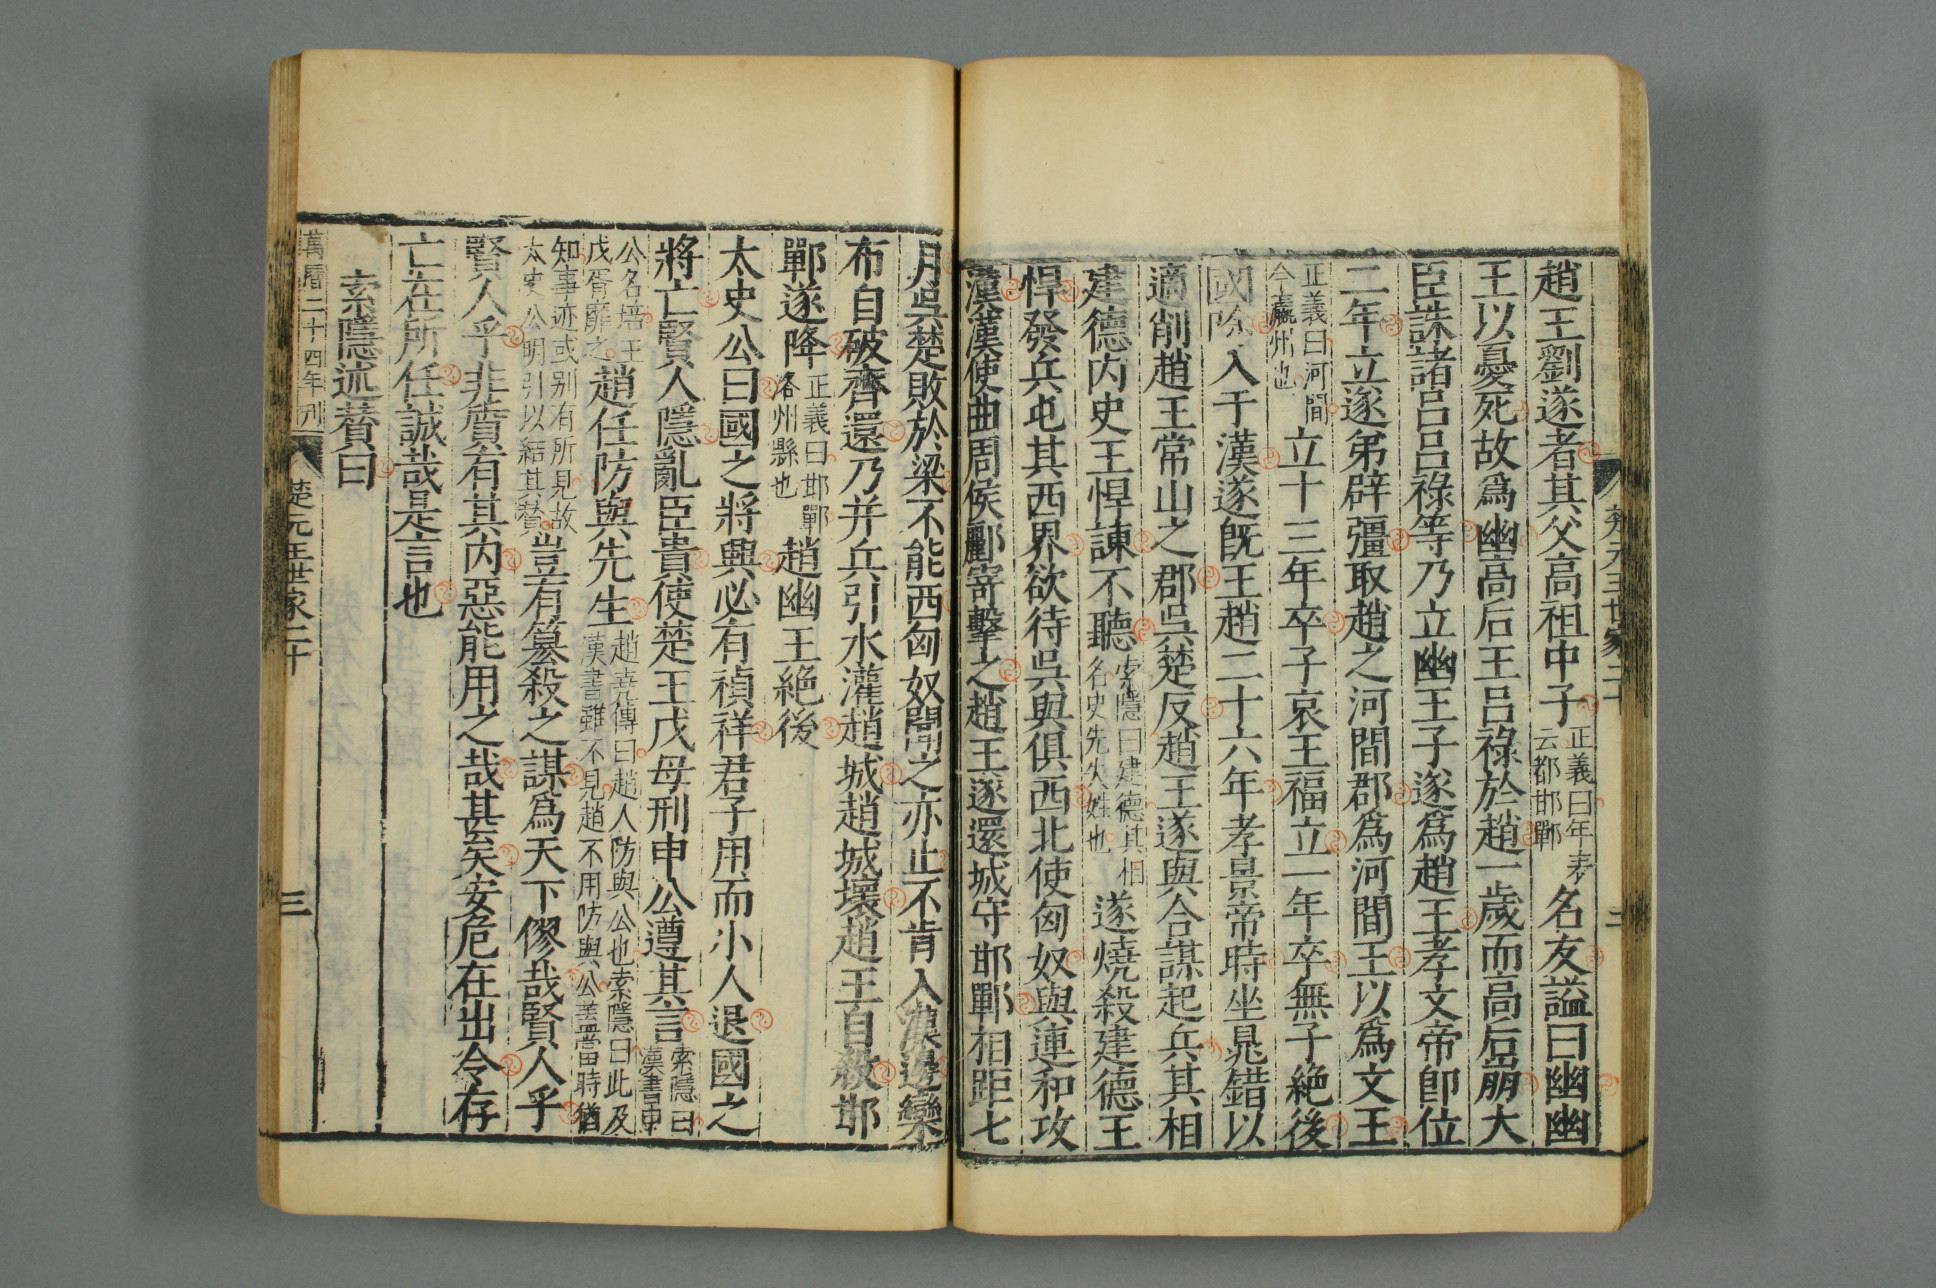 楚元王世家二十
二
趙王劉遂者其父高祖中子正義曰年表云都邯鄲名友謚曰幽幽
王以憂死故爲幽高后王吕祿於趙一歲而高后崩大
臣誅諸吕吕祿等乃立幽王子遂爲趙王孝文帝卽位
二年立遂弟辟彊取趙之河間郡爲河間王以爲文王
正義曰河間今瀛州也立十三年卒子哀王福立一年卒無子絶後
國除入于漢遂旣王趙二十六年孝景帝時坐晁錯以
適削趙王常山之郡吳楚反趙王遂與合謀起兵其相
建德内史王悍諫不聽索隱曰建德其相名史先失姓也遂燒殺建德王
悍發兵屯其西界欲待吳與俱西北使匈奴與連和攻
漢漢使曲周侯酈寄擊之趙王遂還城守邯鄲相距七
月吳楚敗於梁不能西匈奴聞之亦止不肯入漢邊欒
布自破齊還乃并兵引水灌趙城趙城壞趙王自殺邯
鄲遂降正義曰邯鄲洛州縣也趙幽王絶後
太史公曰國之將興必有禎祥君子用而小人退國之
將亡賢人隱亂臣貴使楚王戊毋刑申公遵其言索隱曰漢書申
公名培王戊胥靡之趙任防與先生趙堯傳曰趙人防與公也索隱曰此及漢書雖不見趙不用防與公蓋當時猶
知事迹或别有所見故太史公明引以結其贊豈有篡殺之謀爲天下僇哉賢人乎
賢人乎非質有其内惡能用之哉甚矣安危在出令存
亡在所任誠哉是言也
索隱述贊曰
萬曆二十四年刊
楚元王世家二十
三